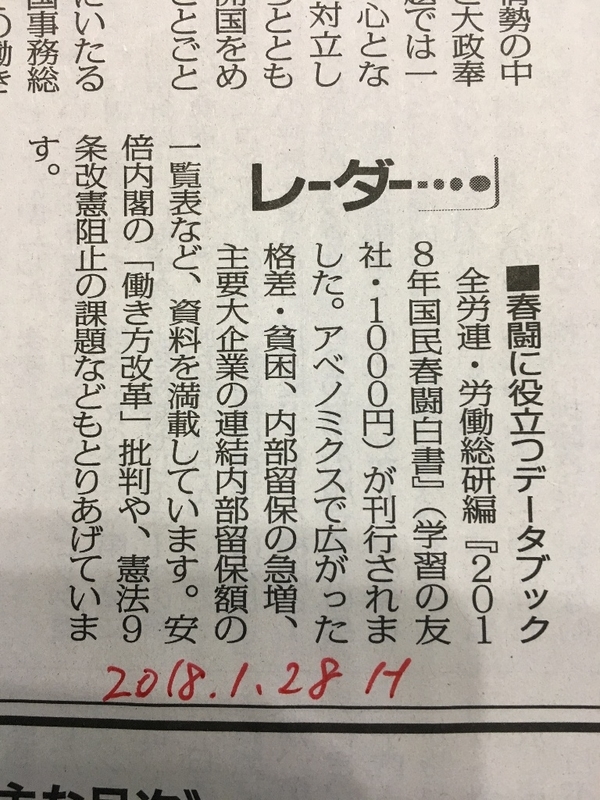 情勢の中
き大政奉
題では一
心とな
対立し
らととも
開国をめ
とごと
にいたる
国事務総
の働き
レーダー
■春闘に役立つデータブック
全労連・労働総研編『201
8年国民春闘白書』（学習の友
社・1000円）が刊行されま
した。アベノミクスで広がった
格差・貧困、内部留保の急増、
主要大企業の連結内部留保額の
一覧表など、資料を満載しています。安
倍内閣の「働き方改革」批判や、憲法9
条改憲阻止の課題などもとりあげていま
す。
2018.1.28 H